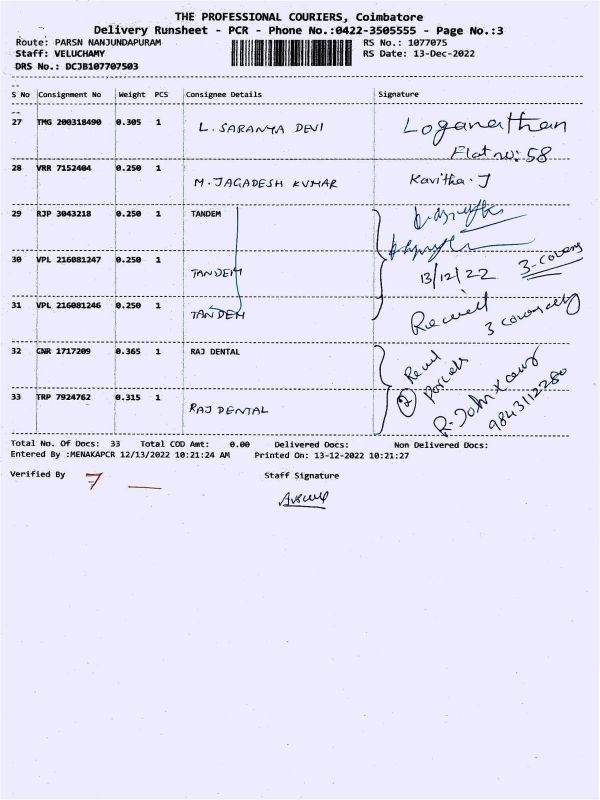 THE PROFESSIONAL COURIERS, Coimbatore
Delivery Runsheet - PCR - Phone No.:0422-3505555 - Page No.:3
Route: PARSN NANJUNDAPURAM
RS No.: 1077075
Staff: VELUCHAMY
RS Date: 13-Dec-2022
DRS No.: DCJB107707503
S No Consignment No Weight PCS Consignee Details Signature
27 TMG 200318490 0.305 1 L. SARANYA DEVI Loganathan
Flat no: 58
28 VRR 7152404 0.250 1 M. JAGADESH KUMAR Kavitha. J
29 RJP 3043218 0.250 1 TANDEM
30 VPL 216081247 0.250 1 TANDEM 13/12/22 3-covers
31 VPL 216081246 0.250 1 TANDEM
3
32 CNR 1717209 0.365 1 RAJ DENTAL
2
33 TRP 7924762 0.315 1 RAJ DENTAL R. John
9843112280
Total No. Of Docs: 33 Total COD Amt: 0.00 Delivered Docs: Non Delivered Docs:
Entered By :MENAKAPCR 12/13/2022 10:21:24 AM Printed On: 13-12-2022 10:21:27
Verified By Staff Signature